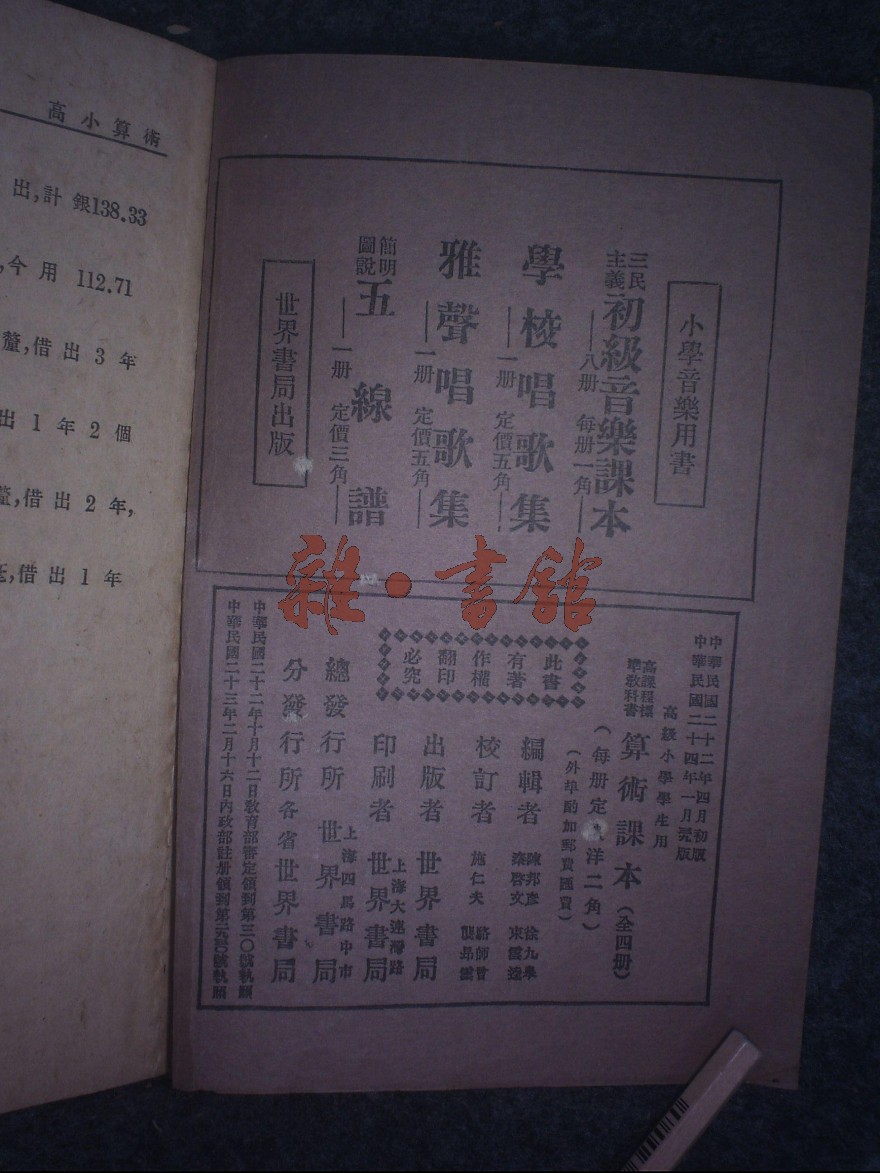 高小算術
出,計銀138.33
,今用 112.71
釐,借出 3 年
出 1 年 2 個
釐,借出 2 年,
,借出 1 年
小學音樂用書
三民主義 初級音樂課本
——八册 每册一角——
學校唱歌集
——一册 定價五角——
雅聲唱歌集
——一册 定價五角——
簡明圖說 五線譜
——一册 定價三角——
世界書局出版
雜·書館
中華民國二十二年四月初版
中華民國二十四年一月 版
高級小學學生用
高課程標準教科書 算術課本(全四册)
(每册定 洋二角)
(外埠酌加郵費匯費)
此書有著作權翻印必究
編輯者 陳邦彥 徐九皋 秦啓文 東雲逵
校訂者 施仁夫 駱師曾 龔昂雲
出版者 世界書局
印刷者 上海大連灣路 世界書局
總發行所 上海四馬路中市 世界書局
分發行所 各省世界書局
中華民國二十二年十月十二日教育部審定領到第三〇號執照
中華民國二十三年二月十六日內政部註册領到第 號執照